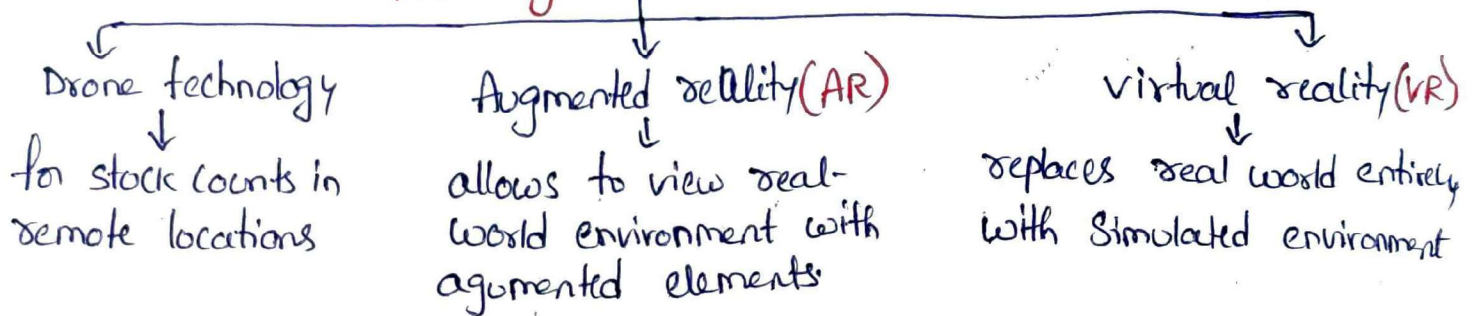 Drone technology
for stock counts in
remote locations
Augmented reality(AR)
allows to view real-
world environment with
agumented elements.
virtual reality(VR)
replaces real world entirely
with simulated environment